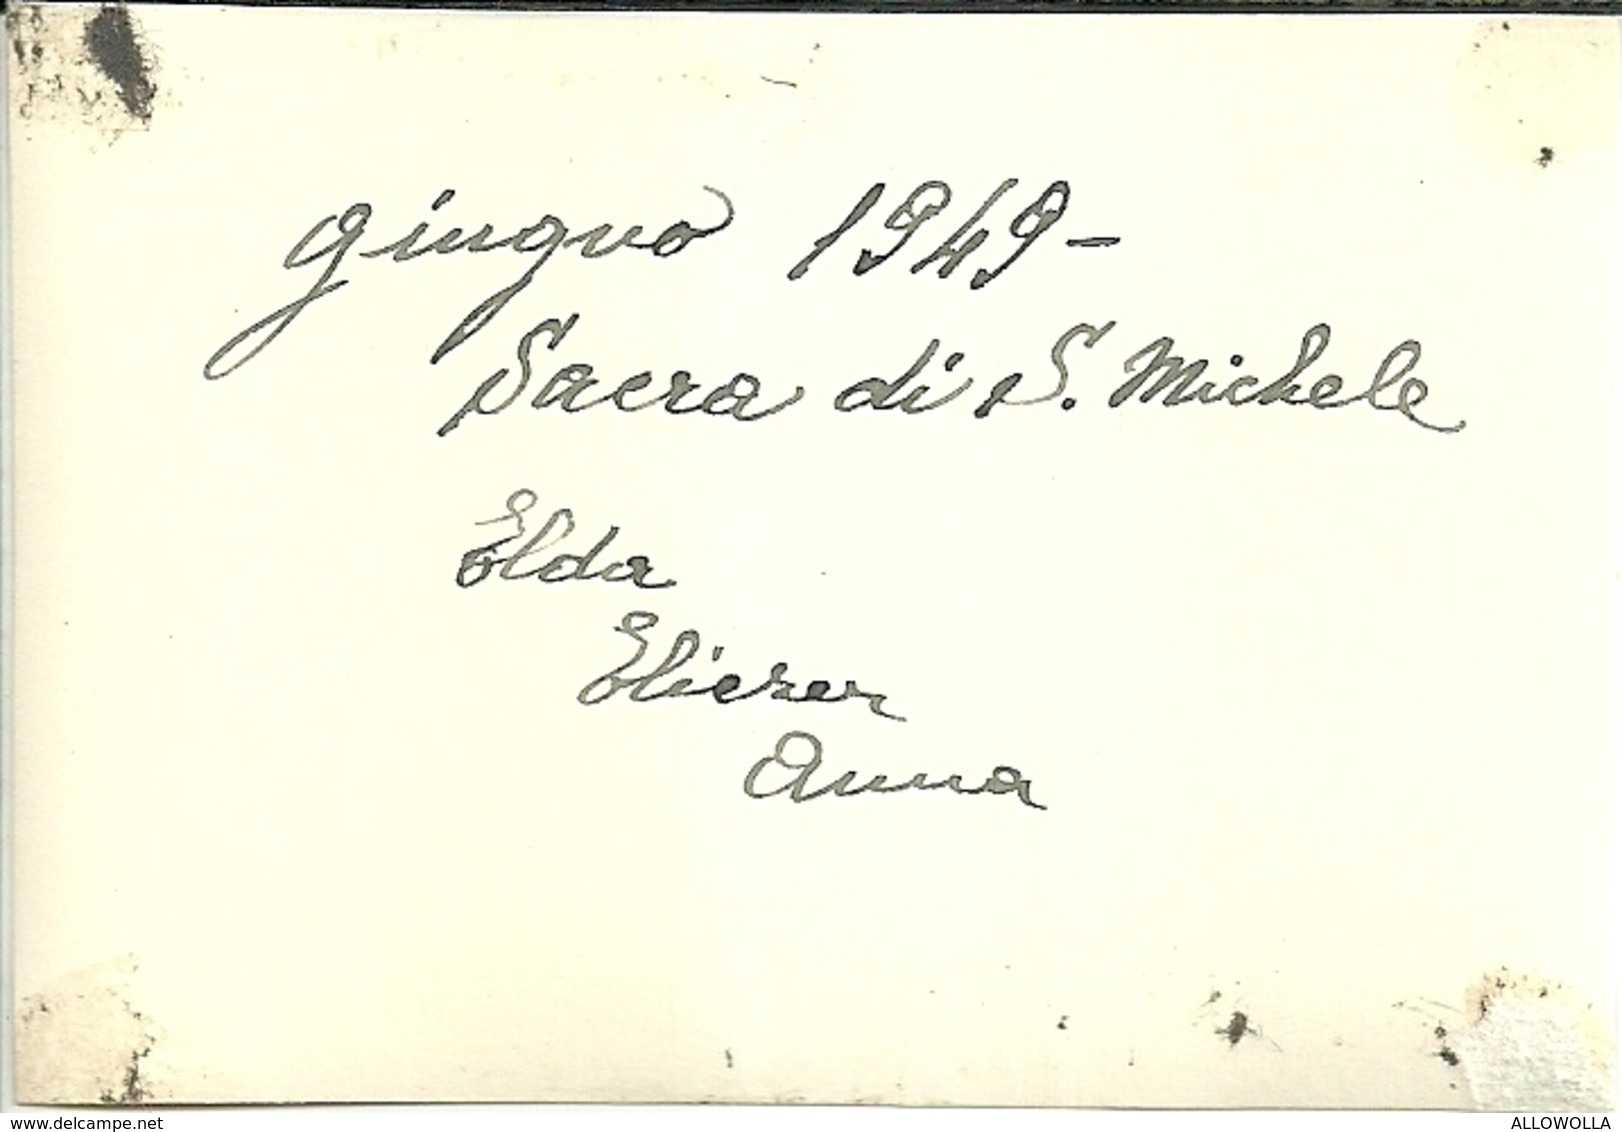 giugno 1949 -
Sacra di S. Michele
Elda
Eliezer
Anna
www.delcampe.net
ALLOWOLLA